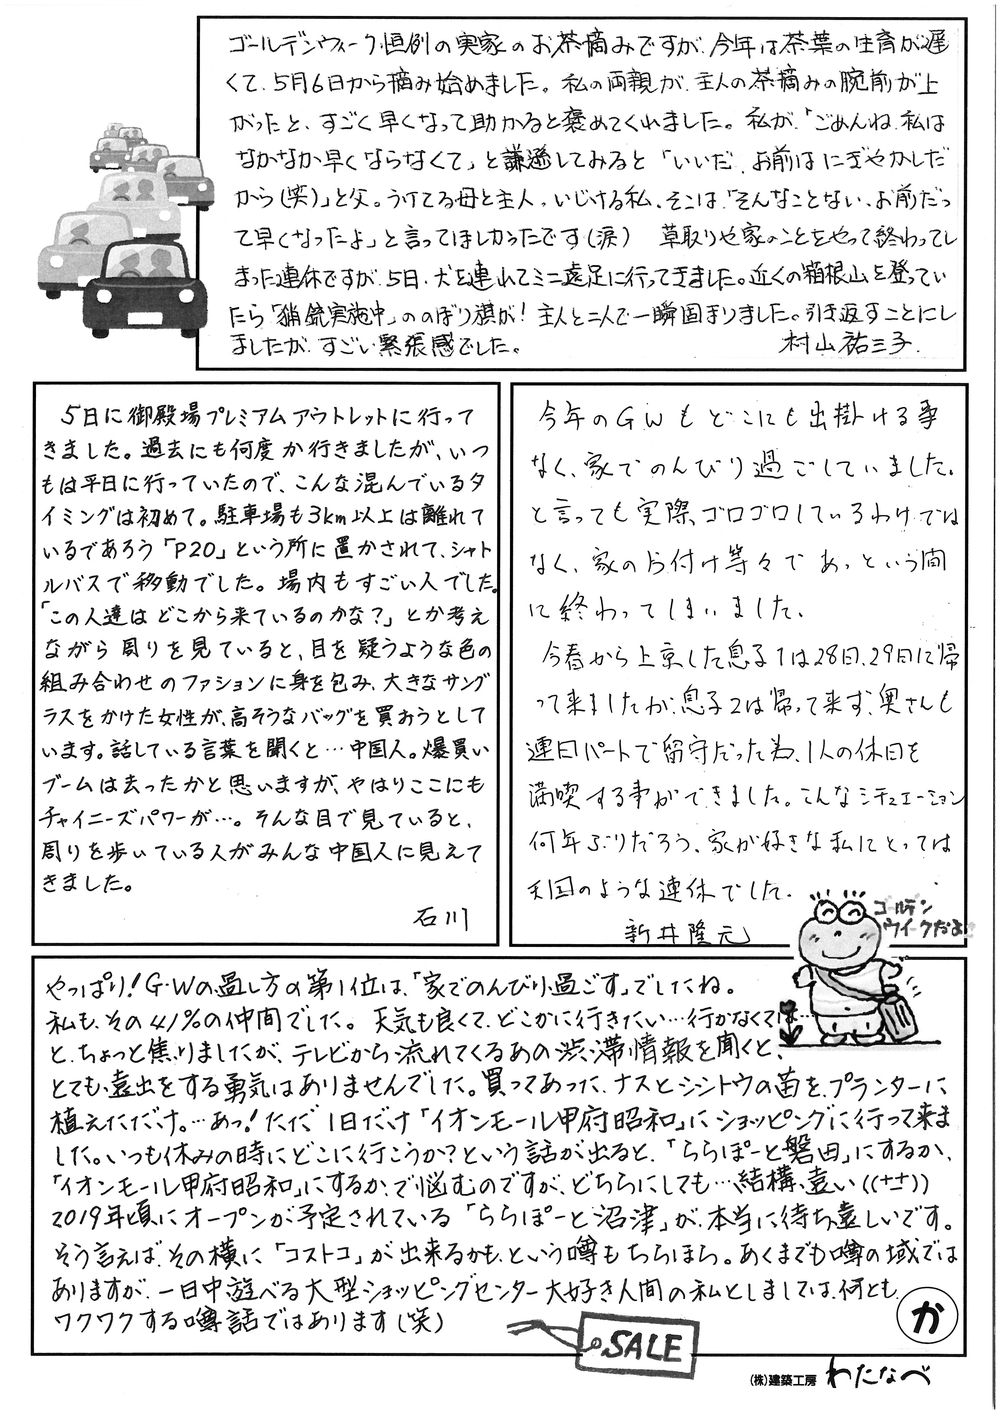 ゴールデンウィーク恒例の実家のお茶摘みですが、今年は茶葉の生育が遅
くて、5月6日から摘み始めました。私の両親が、主人の茶摘みの腕前が上
がったと、すごく早くなって助かると褒めてくれました。私が、「ごめんね、私は
なかなか早くならなくて」と謙遜してみると「いいだ、お前はにぎやかしだ
から(笑)」と父。うけてる母と主人、いじける私、そこは、「そんなことない、お前だっ
て早くなったよ」と言ってほしかったです(涙) 草取りや家のことをやって終わってし
まった連休ですが、5日、犬を連れてミニ遠足に行ってきました。近くの箱根山を登ってい
たら「猟銃実施中」ののぼり旗が!主人と二人で一瞬固まりました。引き返すことにし
ましたが、すごい緊張感でした。 村山祐三子
5日に御殿場プレミアムアウトレットに行って
きました。過去にも何度か行きましたが、いつ
もは平日に行っていたので、こんな混んでいるタ
イミングは初めて。駐車場も3km以上は離れて
いるであろう「P20」という所に置かされて、シャト
ルバスで移動でした。場内もすごい人でした。
「この人達はどこから来ているのかな?」とか考え
ながら周りを見ていると、目を疑うような色の
組み合わせのファションに身を包み、大きなサング
ラスをかけた女性が、高そうなバッグを買おうとして
います。話している言葉を聞くと…中国人。爆買い
ブームは去ったかと思いますが、やはりここにも
チャイニーズパワーが…。そんな目で見ていると、
周りを歩いている人がみんな中国人に見えて
きました。
石川
今年のGWもどこにも出掛ける事
なく、家でのんびり過ごしていました。
と言っても実際、ゴロゴロしているわけでは
なく、家の片付け等々であっという間
に終わってしまいました。
今春から上京した息子1は28日、29日に帰
って来ましたが、息子2は帰って来ず、奥さんも
連日パートで留守だった為、1人の休日を
満喫する事ができました。こんなシチュエーション
何年ぶりだろう、家が好きな私にとっては
天国のような連休でした。
新井隆元
ゴールデン
ウィークだよ
やっぱり!G・Wの過し方の第1位は、「家でのんびり過ごす」でしたね。
私も、その41%の仲間でした。天気も良くて、どこかに行きたい…行かなくては…
と、ちょっと焦りましたが、テレビから流れてくるあの渋滞情報を聞くと、
とても遠出をする勇気はありませんでした。買ってあった、ナスとシシトウの苗を、プランターに
植えただけ。…あっ!ただ1日だけ「イオンモール甲府昭和」にショッピングに行って来ま
した。いつも休みの時にどこに行こうか?という話が出ると、「ららぽーと磐田」にするか、
「イオンモール甲府昭和」にするか、で悩むのですが、どちらにしても…結構、遠い((+_+))
2019年頃にオープンが予定されている「ららぽーと沼津」が、本当に待ち遠しいです。
そう言えば、その横に「コストコ」が出来るかも、という噂もちらほら。あくまでも噂の域では
ありますが、一日中遊べる大型ショッピングセンター大好き人間の私としましては、何とも、
ワクワクする噂話ではあります(笑)
か
SALE
(株)建築工房 わたなべ